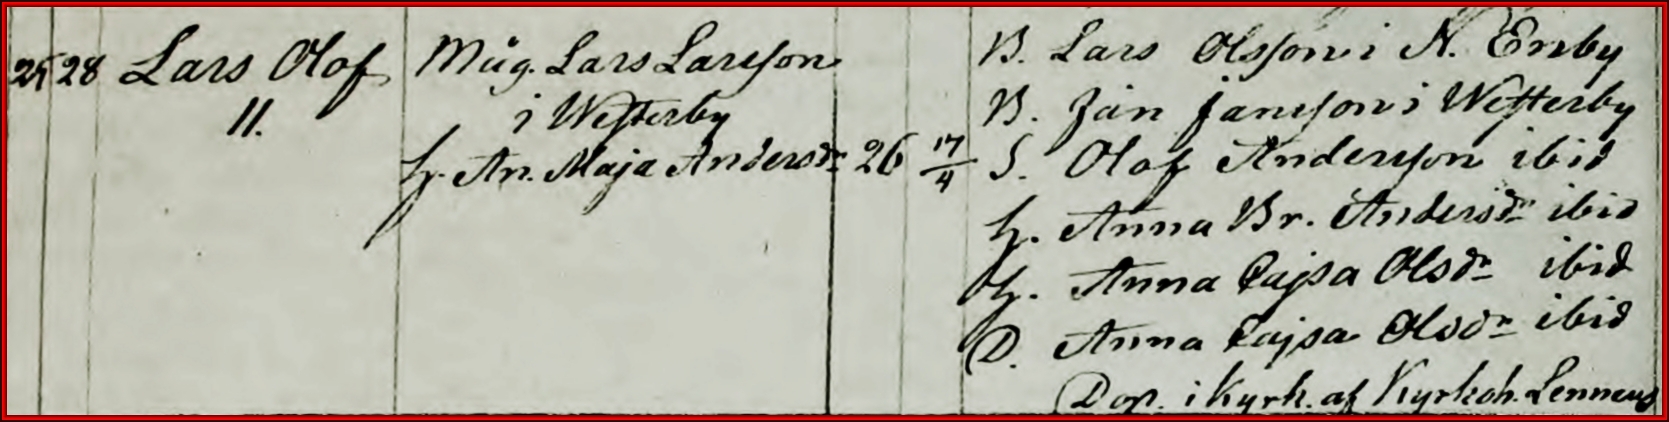 25 28 Lars Olof
11.
Måg. Lars Larsson
i Westerby
H. An. Maja Andersdr 26 17/4
B. Lars Olsson i N. Enby
B. Jan Jansson i Westerby
S. Olof Andersson ibid
H. Anna Br. Andersdr ibid
H. Anna Cajsa Olsdr ibid
D. Anna Cajsa Olsdr ibid
Dop. i Kyrk. af Kyrkoh. Lennæus